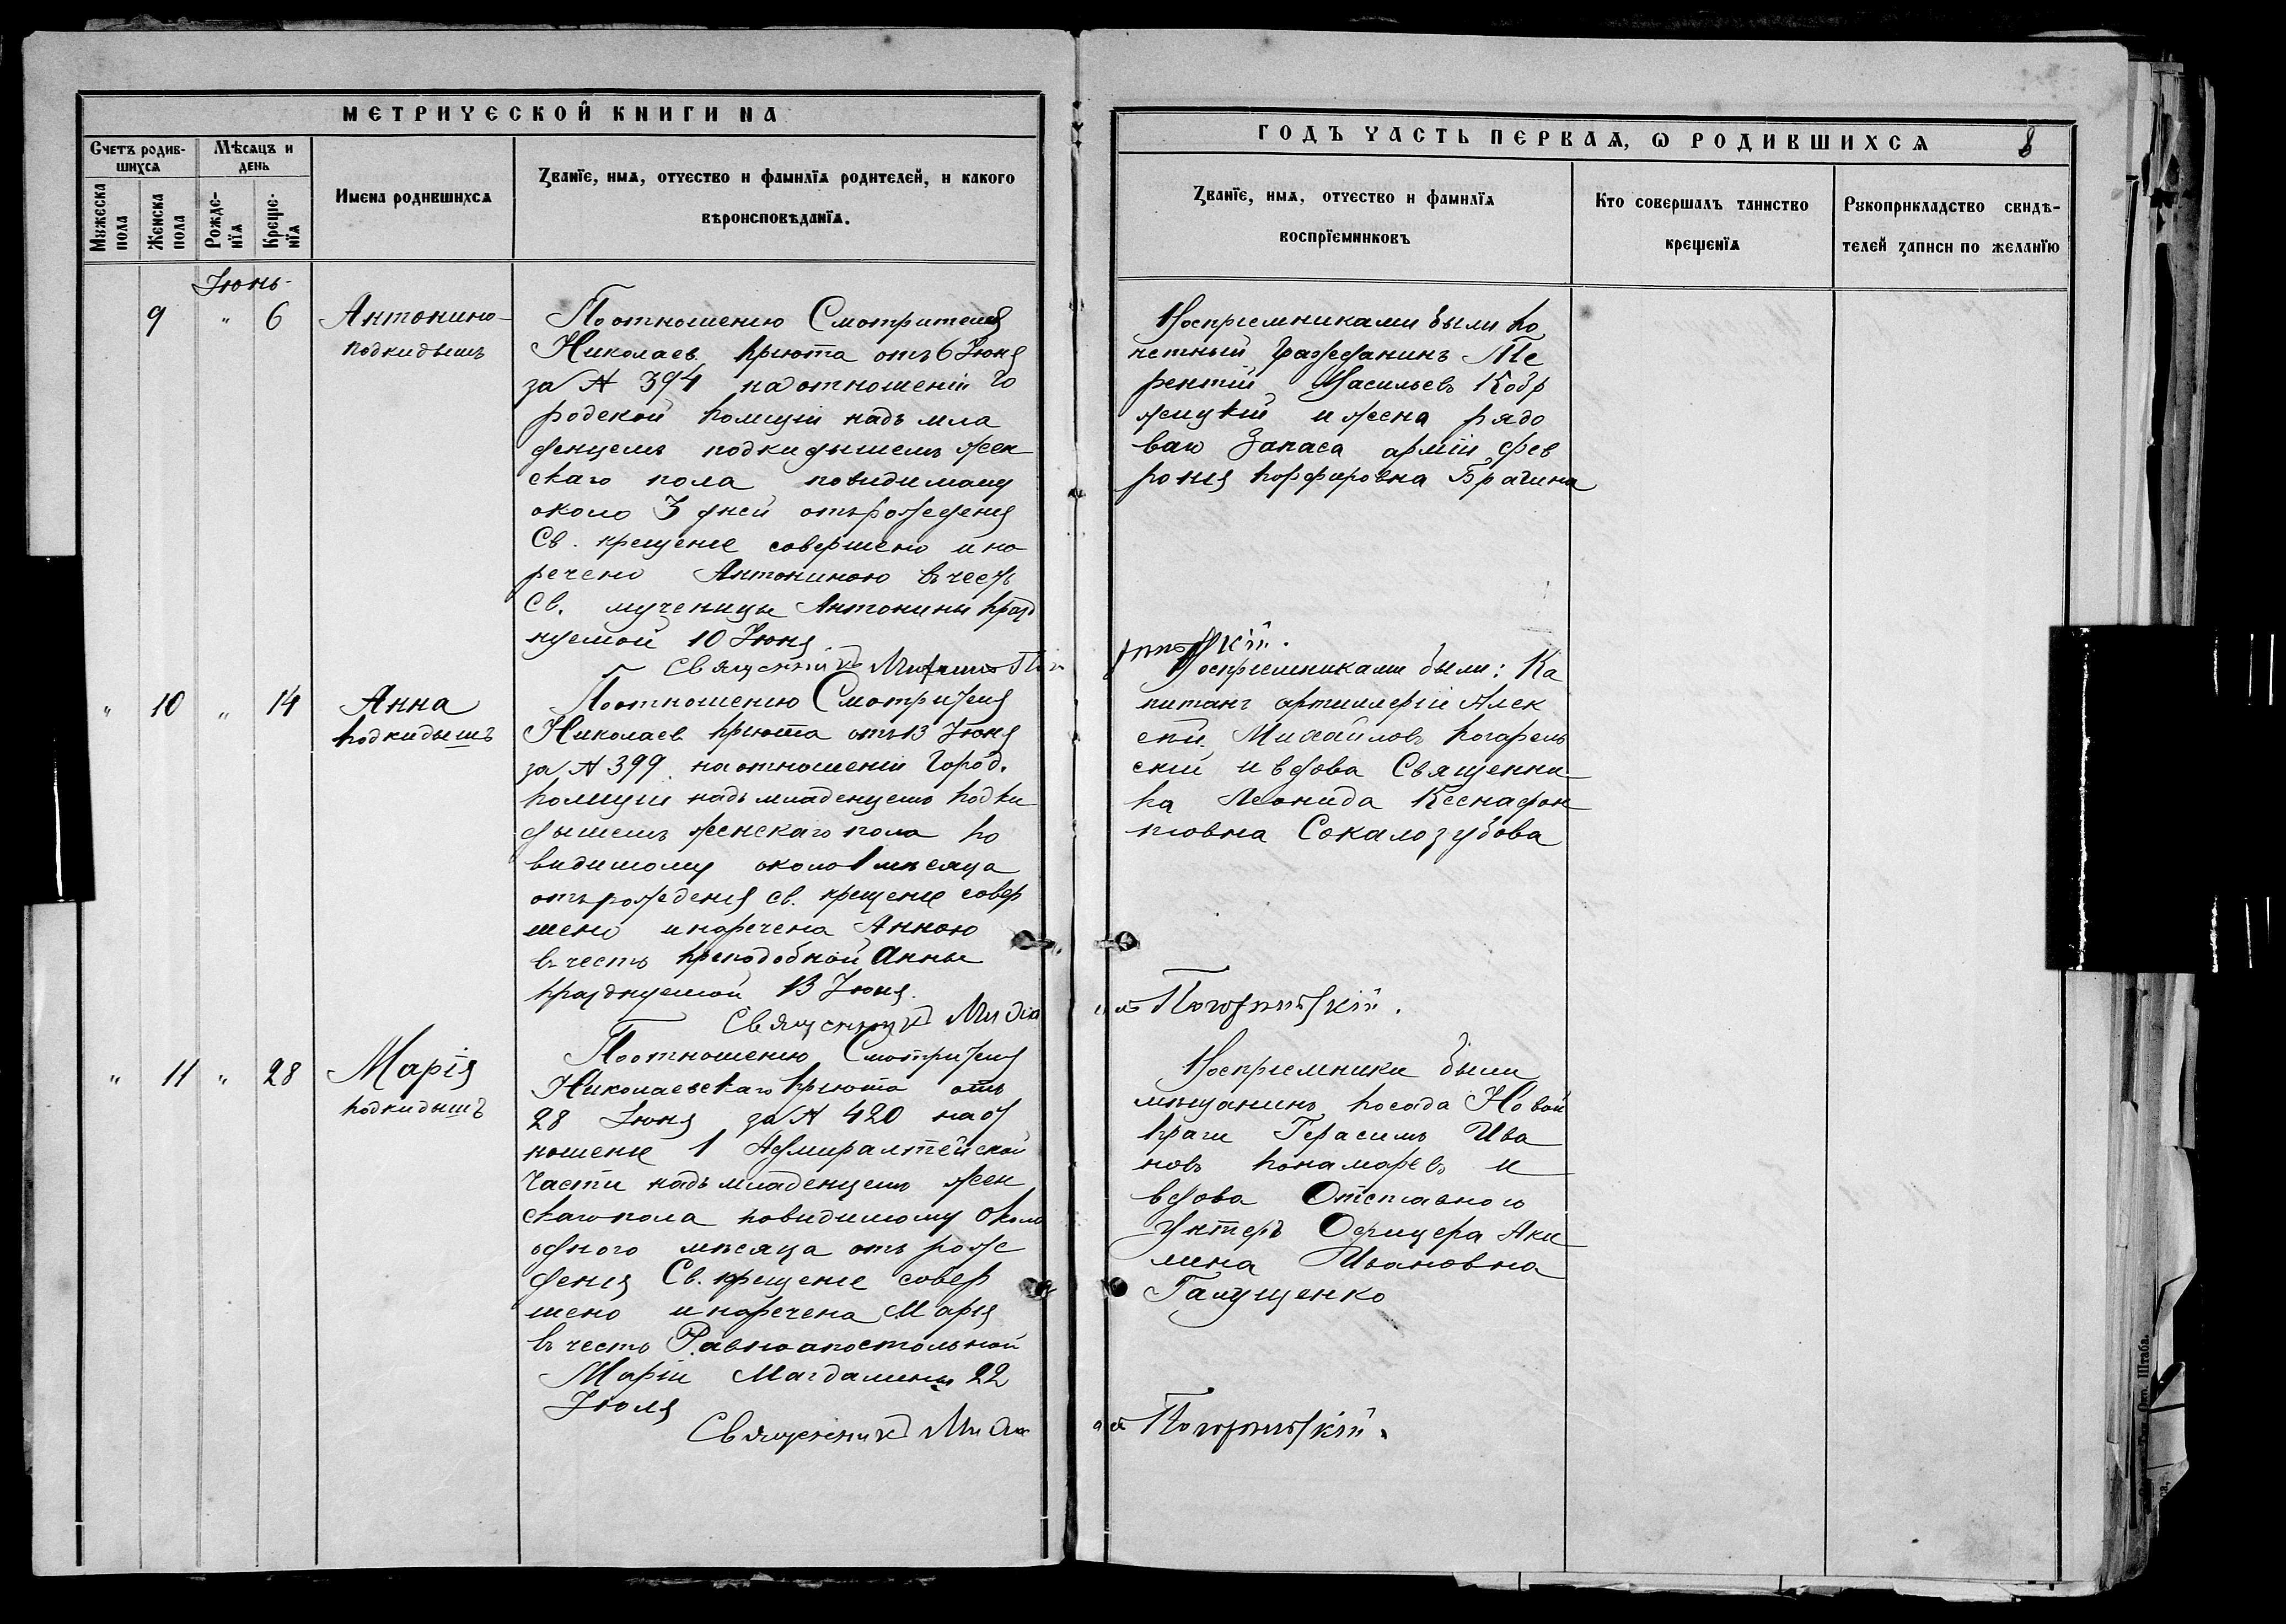 МЕТРИЧЕСКОЙ КНИГИ НА
Счетъ родив-
шихся
Мѣсяцъ и
день
Мужеска
пола
Женска
пола
Рожде-
нїя
Креще-
нїя
Имена родившихся
Званїе, имя, отчество и фамилїя родителей, и какого
вѣроисповѣданїя.
Іюнь
9 " 6
Антонино-
подкидышъ
По отношенію Смотрителя
Николаев. пріюта отъ 6 Іюня
за № 394 на отношеніи го
родской полиціи надъ мла
денцемъ подкидышемъ жен
скаго пола повидимому
около 3 дней отъ рожденія
Св. крещеніе совершено и на
речено Антониною въ честь
Св. мученицы Антонины празд
нуемой 10 Іюня.
Священникъ
" 10 " 14
Анна
подкидышъ
По отношенію Смотрителя
Николаев. пріюта отъ 13 Іюня
за № 399 на отношеніи Город.
полиціи надъ младенцемъ подки
дышемъ женскаго пола по
видимому около 1 мѣсяца
отъ рожденія св. крещеніе совер
шено и наречена Анною
въ честь преподобной Анны
празднуемой 13 Іюня.
Священникъ
" 11 " 28
Марія
подкидышъ
По отношенію Смотрителя
Николаевскаго пріюта отъ
28 Іюня за № 420 на от
ношеніе 1 Адмиралтейской
части надъ младенцемъ жен
скаго пола повидимому около
одного мѣсяца отъ рож
денія Св. крещеніе совер
шено и наречена Марія
въ честь Равноапостольной
Маріи Магдалины 22
Іюля
Священникъ
ГОДЪ ЧАСТЬ ПЕРВАЯ, Ѡ РОДИВШИХСЯ
8
Званїе, имя, отчество и фамилїя
воспрїемниковъ
Кто совершалъ таинство
крещенїя
Рукоприкладство свидѣ-
телей записи по желанїю
Воспріемниками были по
четный гражданинъ Те
рентій Васильевъ Кобр
жицкій и жена рядо
ваго Запаса арміи Фев
ронія Порфировна Брагина
Воспріемниками были: Ка
питанъ артиллеріи Алек
сѣй Михайловъ Погарель
скій и вдова Священни
ка Леонида Ксенафон
товна Сокалозубова
Погорѣльскій.
Воспріемники были
мѣщанинъ посада Новой
праги Герасимъ Ива
новъ Понамаревъ и
вдова Отставного
Унтеръ Офицера Аки
лина Ивановна
Галущенко
Погорѣльскій.